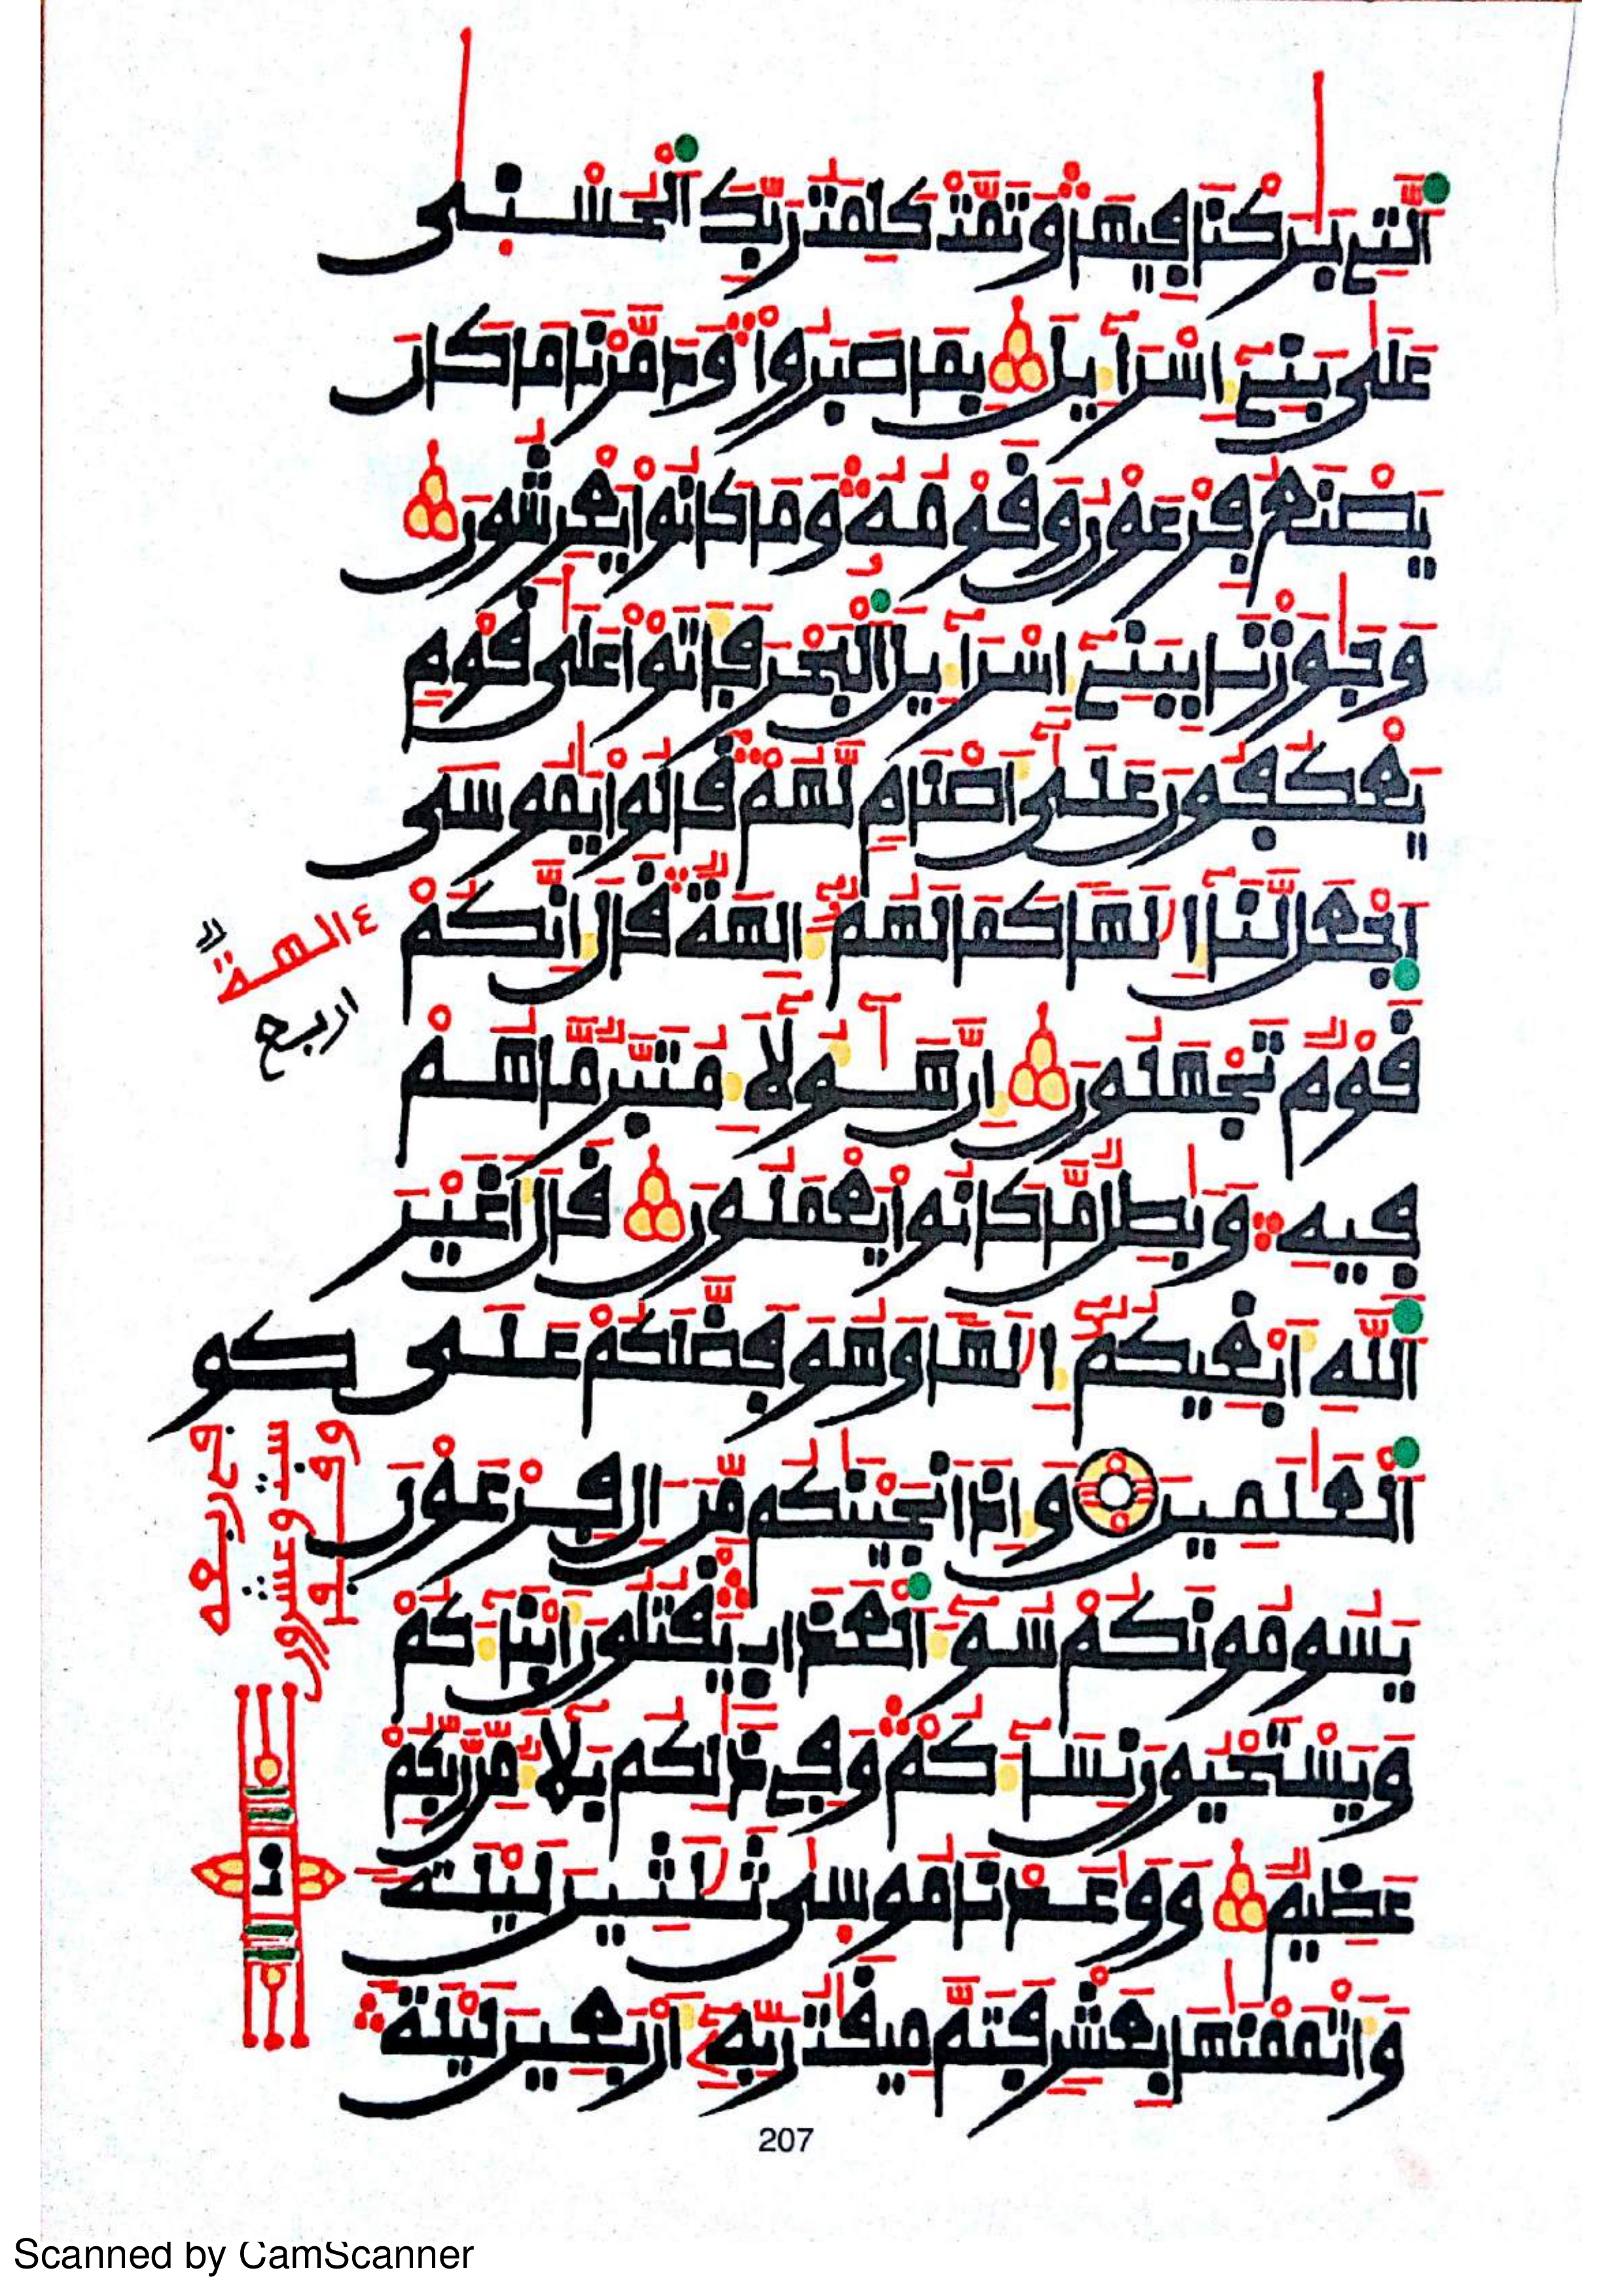 اَ۬لتِے بَٰرَكْنَا فِيهَا وَتَمَّتْ كَلِمَتُ رَبِّكَ اَ۬لْحُسْنَىٰ
عَلَىٰ بَنِےٓ إِسْرَآءِيلَ بِمَا صَبَرُواْ وَدَمَّرْنَا مَا كَانَ
يَصْنَعُ فِرْعَوْنُ وَقَوْمُهُۥ وَمَا كَانُواْ يَعْرِشُونَ
وَجَٰوَزْنَا بِبَنِےٓ إِسْرَآءِيلَ اَ۬لْبَحْرَ فَأَتَوْاْ عَلَىٰ قَوْمٖ
يَعْكُفُونَ عَلَىٰٓ أَصْنَامٖ لَّهُمْ قَالُواْ يَٰمُوسَى
اَ۪جْعَل لَّنَآ إِلَٰهاٗ كَمَا لَهُمُۥٓ ءَالِهَةٞ قَالَ إِنَّكُمْ
قَوْمٞ تَجْهَلُونَ إِنَّ هَٰٓؤُلَآءِ مُتَبَّرٞ مَّا هُمْ
فِيهِ وَبَٰطِلٞ مَّا كَانُواْ يَعْمَلُونَ قَالَ أَغَيْرَ
اَ۬للَّهِ أَبْغِيكُمُۥٓ إِلَٰهاٗ وَهُوَ فَضَّلَكُمْ عَلَى كو
اَ۬لْعَٰلَمِينَ وَإِذَ اَنجَيْنَٰكُم مِّنَ اٰلِ فِرْعَوْنَ
يَسُومُونَكُمْ سُوٓءَ اَ۬لْعَذَابِ يَقْتُلُونَ أَبْنَآءَكُمْ
وَيَسْتَحْيُونَ نِسَآءَكُمْ وَفِے ذَٰلِكُم بَلَآءٞ مِّن رَّبِّكُمْ
عَظِيمٞ وَوَٰعَدْنَا مُوسَىٰ ثَلَٰثِينَ لَيْلَةٗ
وَأَتْمَمْنَٰهَا بِعَشْرٖ فَتَمَّ مِيقَٰتُ رَبِّهِۦٓ أَرْبَعِينَ لَيْلَةٗ
ءالهةٌ
اربع
207
Scanned by CamScanner